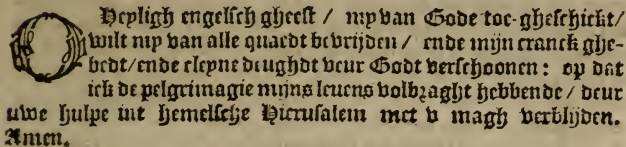 O Heyligh engelsch gheest / my van Gode toe-gheschickt/
wilt my van alle quaedt bevrijden / ende mijn cranck ghe-
bedt/ende cleyne deughdt veur Godt verschoonen: op dat
ick de pelgrimagie mijns levens volbraght hebbende / deur
uwe hulpe int Hemelsche Hierusalem met v magh verblijden.
Amen.